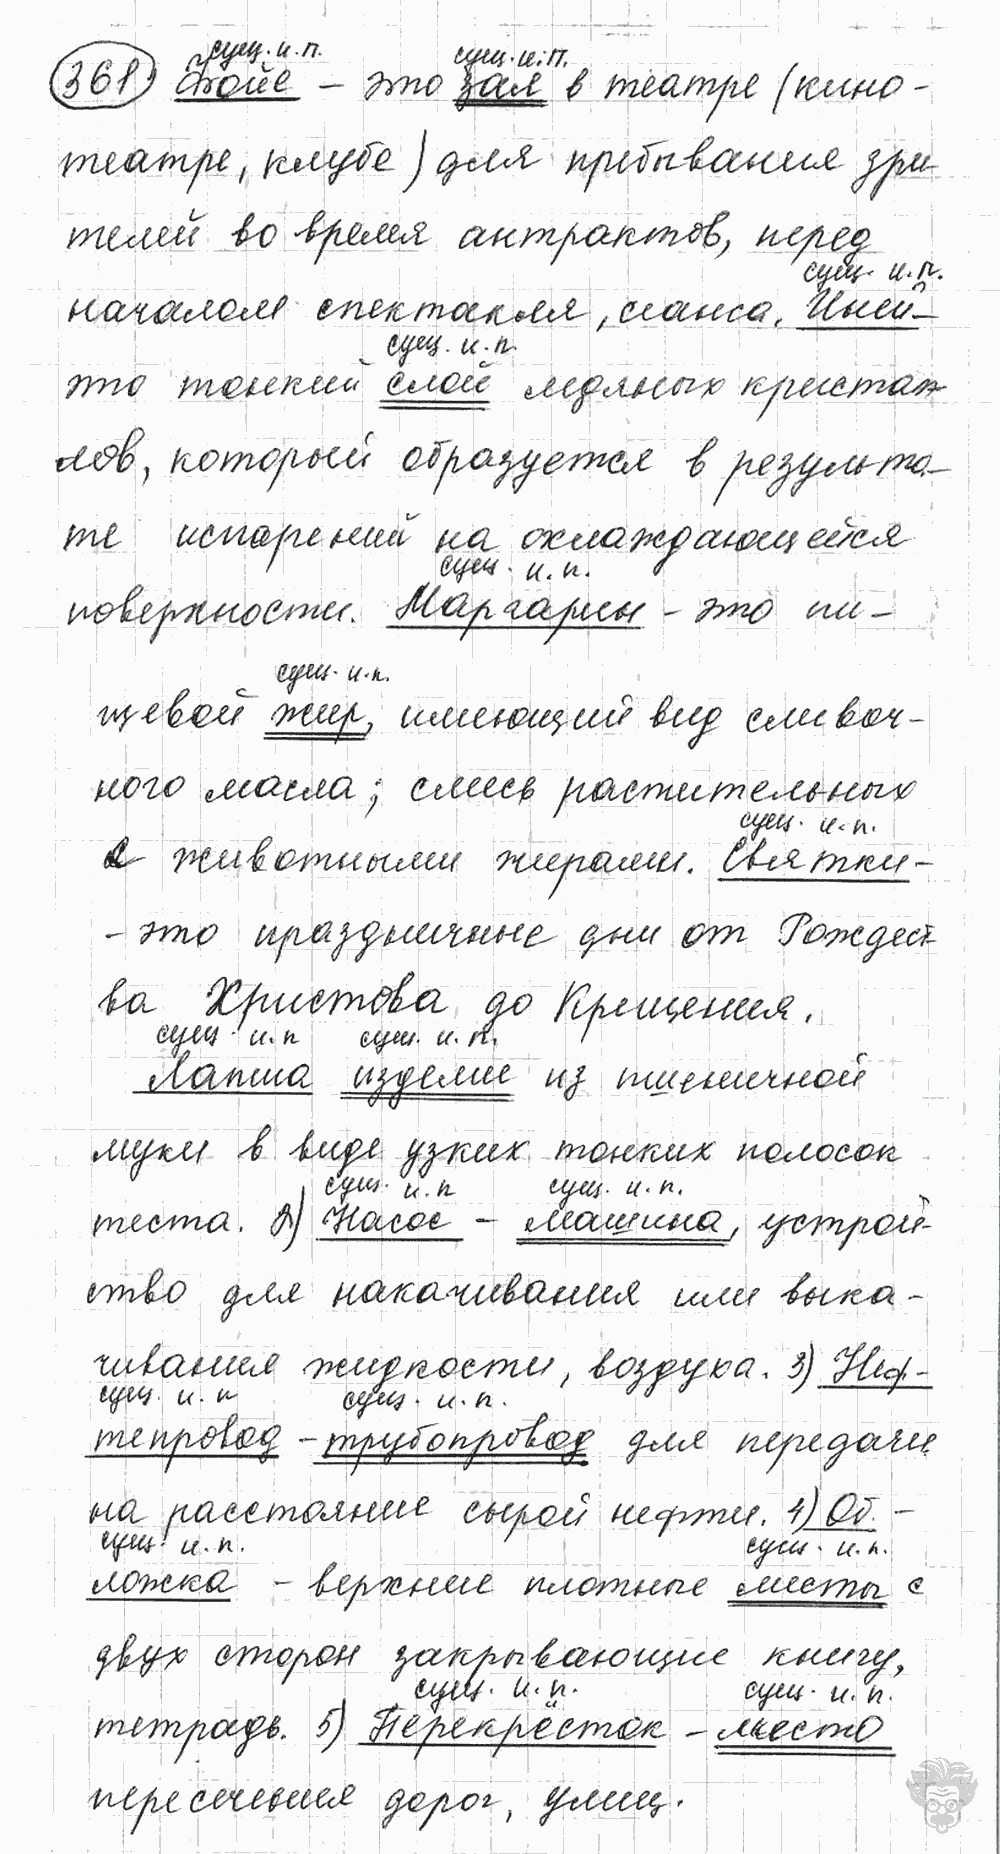 сущ. и.п. сущ. и.п.
361. Фойе – это зал в театре (кино-
театре, клубе) для пребывания зри-
телей во время антрактов, перед
сущ. и.п.
началом спектакля, сеанса. Иней –
сущ. и.п.
это тонкий слой ледяных кристал-
лов, который образуется в результа-
те испарений на охлаждающейся
сущ. и.п.
поверхности. Маргарин – это пи-
сущ. и.п.
щевой жир, имеющий вид сливоч-
ного масла; смесь растительных
сущ. и.п.
с животными жирами. Святки –
- это праздничные дни от Рождест-
ва Христова до Крещения.
сущ. и.п сущ. и.п.
Лапша изделие из пшеничной
муки в виде узких тонких полосок
сущ. и.п сущ. и.п.
теста. 2) Насос – машина, устрой-
ство для накачивания или выка-
чивания жидкости, воздуха. 3) Неф-
сущ. и.п сущ. и.п.
тепровод – трубопровод для передачи
на расстояние сырой нефти. 4) Об-
сущ. и.п. сущ. и.п.
ложка – верхние плотные листы с
двух сторон закрывающие книгу,
сущ. и.п. сущ. и.п.
тетрадь. 5) Перекрёсток – место
пересечения дорог, улиц.